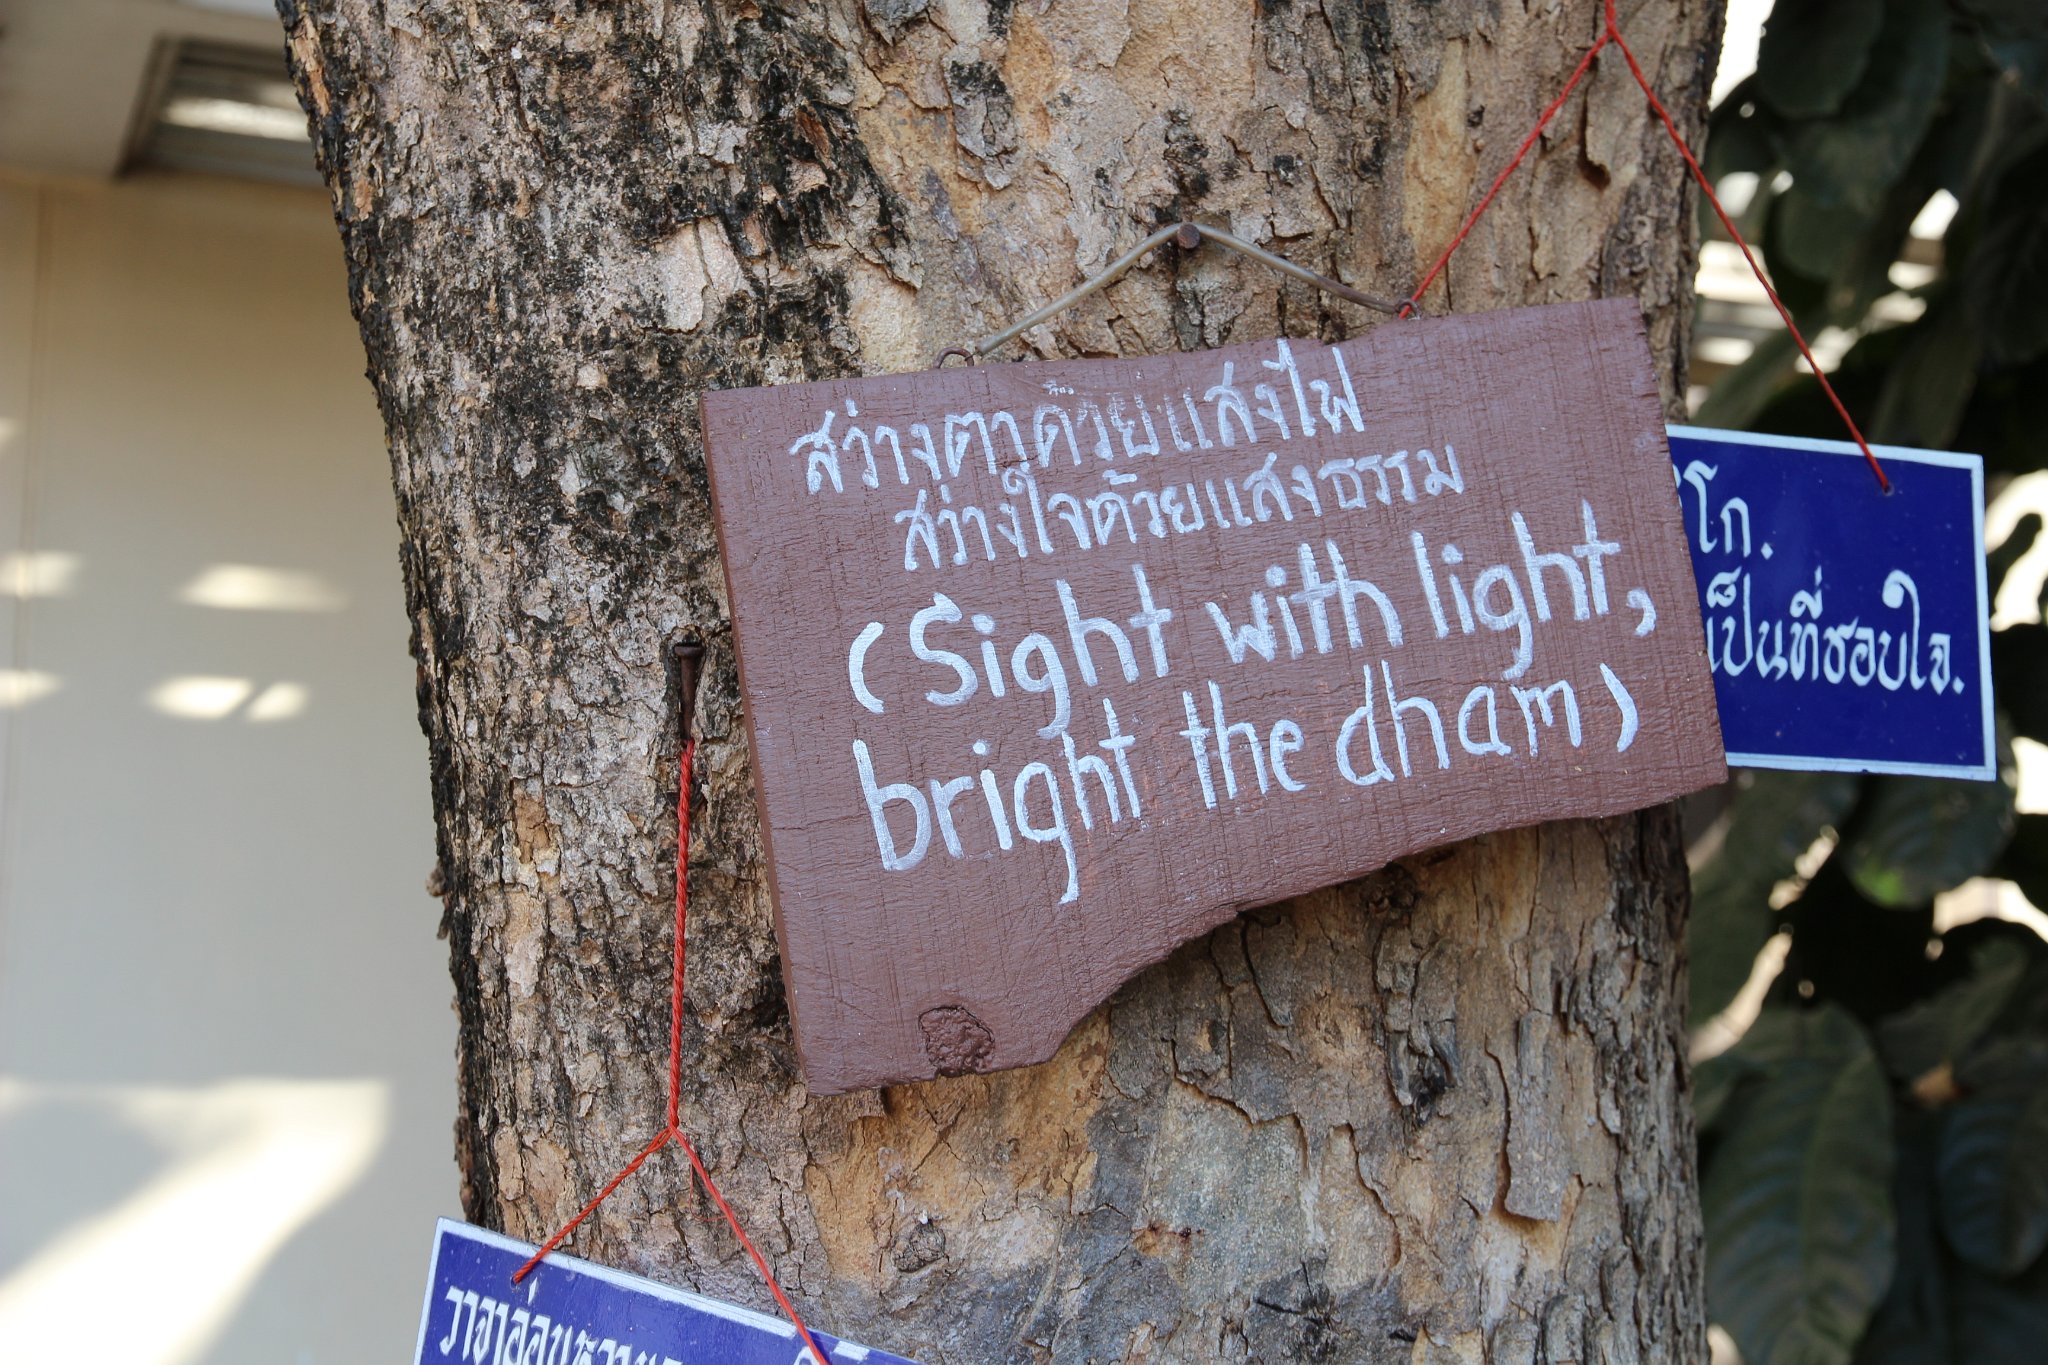 สว่างตาด้วยแสงไฟ
สว่างใจด้วยแสงธรรม
(Sight with light,
bright the dham)
โก.
เป็นที่ชอบใจ.
วาจาอ่อนหวาน